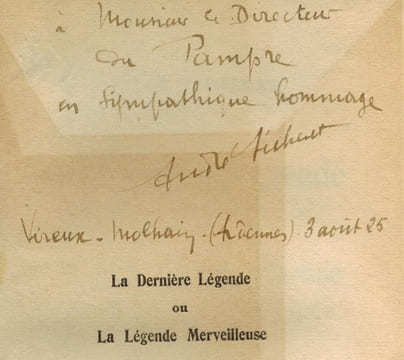 à Monsieur le Directeur
du Pampre
en sympathique hommage
André
Vireux-Molhain (Ardennes) 3 août 25
La Dernière Légende
ou
La Légende Merveilleuse